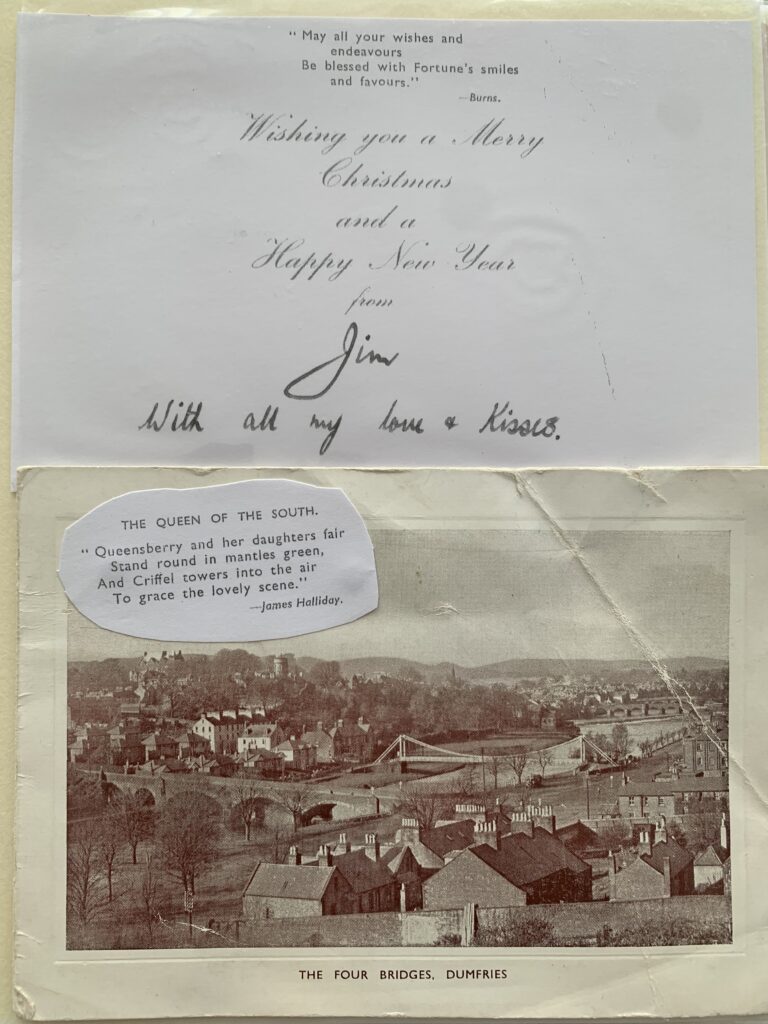 " May all your wishes and
endeavours
Be blessed with Fortune's smiles
and favours."
—Burns.
Wishing you a Merry
Christmas
and a
Happy New Year
from
Jim
With all my love & Kisses.
THE QUEEN OF THE SOUTH.
" Queensberry and her daughters fair
Stand round in mantles green,
And Criffel towers into the air
To grace the lovely scene."
—James Halliday.
THE FOUR BRIDGES, DUMFRIES